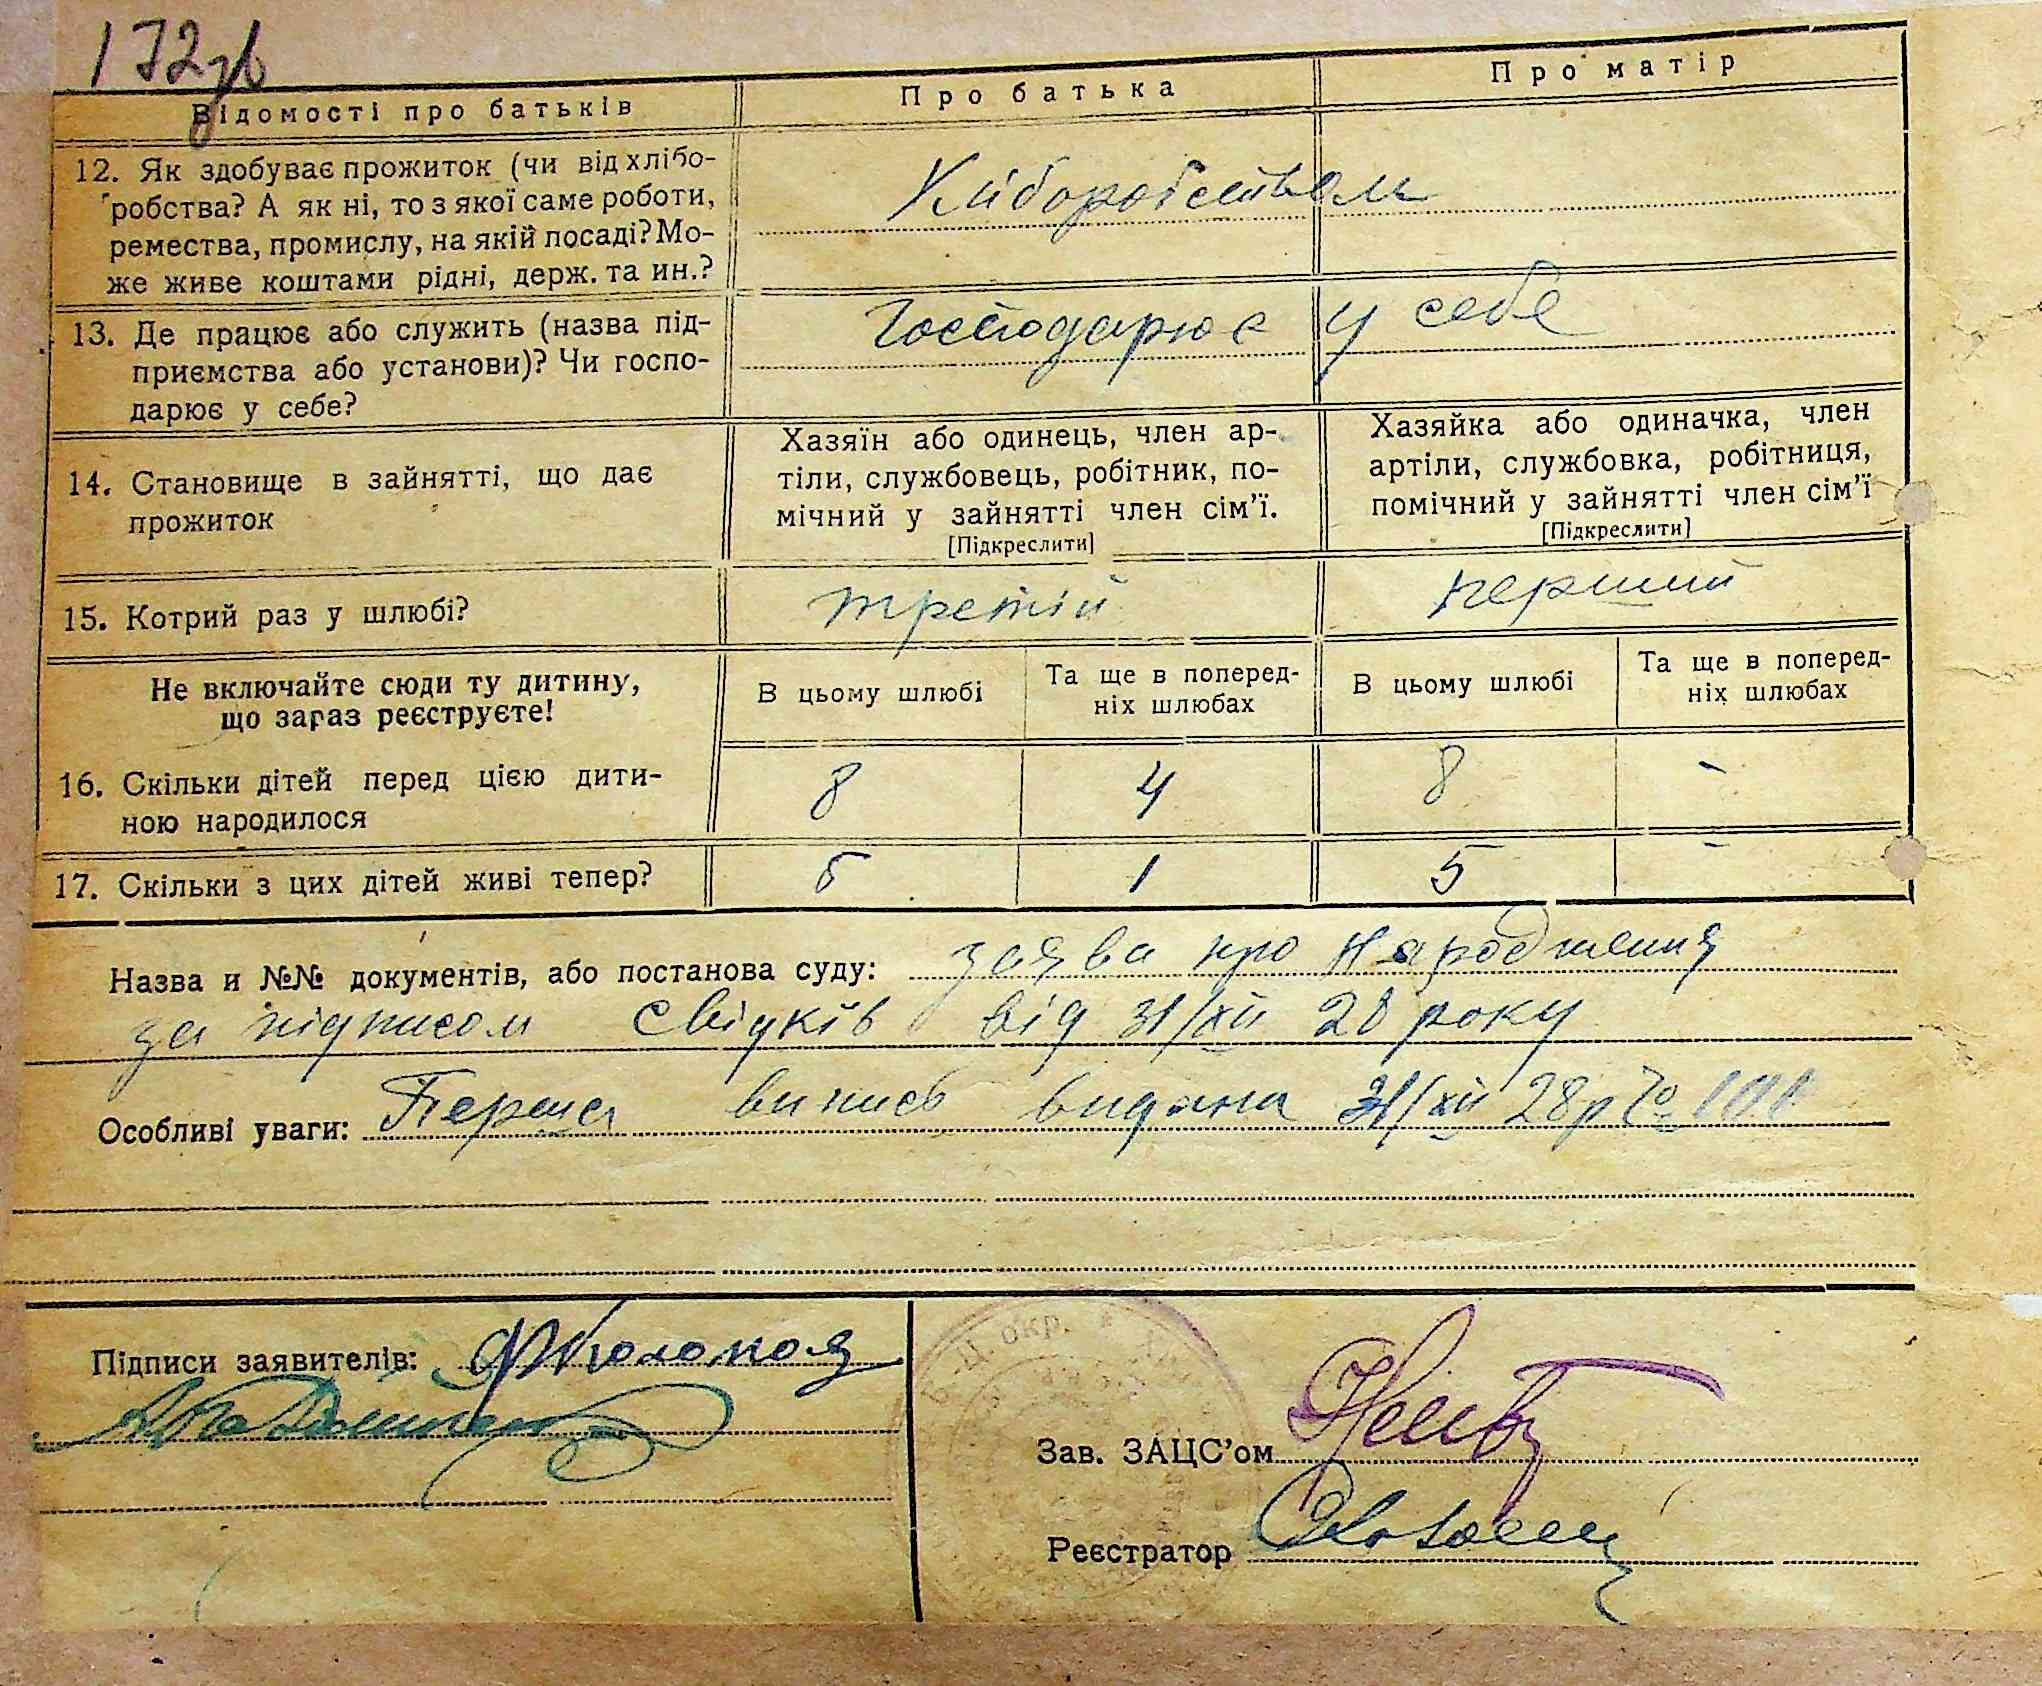 172зв
Відомості про батьків
Про батька
Про матір
12. Як здобуває прожиток (чи від хлібо-
робства? А як ні, то з якої саме роботи,
ремества, промислу, на якій посаді? Мо-
же живе коштами рідні, держ. та ин.?
Хліборобством
13. Де працює або служить (назва під-
приємства або установи)? Чи госпо-
дарює у себе?
Господарює у себе
14. Становище в зайнятті, що дає
прожиток
Хазяїн або одинець, член ар-
тіли, службовець, робітник, по-
мічний у зайнятті член сім'ї.
[Підкреслити]
Хазяйка або одиначка, член
артіли, службовка, робітниця,
помічний у зайнятті член сім'ї
[Підкреслити]
15. Котрий раз у шлюбі?
третій
перший
Не включайте сюди ту дитину,
що зараз реєструєте!
В цьому шлюбі
Та ще в поперед-
ніх шлюбах
В цьому шлюбі
Та ще в поперед-
ніх шлюбах
16. Скільки дітей перед цією дити-
ною народилося
8 4 8 -
17. Скільки з цих дітей живі тепер?
5 1 5 -
Назва и №№ документів, або постанова суду: заява про народження
за підписом свідків від 31/XII 28 року
Особливі уваги: Перша випись видана 31/XII 28р
Підписи заявителів:
окр.
Зав. ЗАЦС'ом
Реєстратор